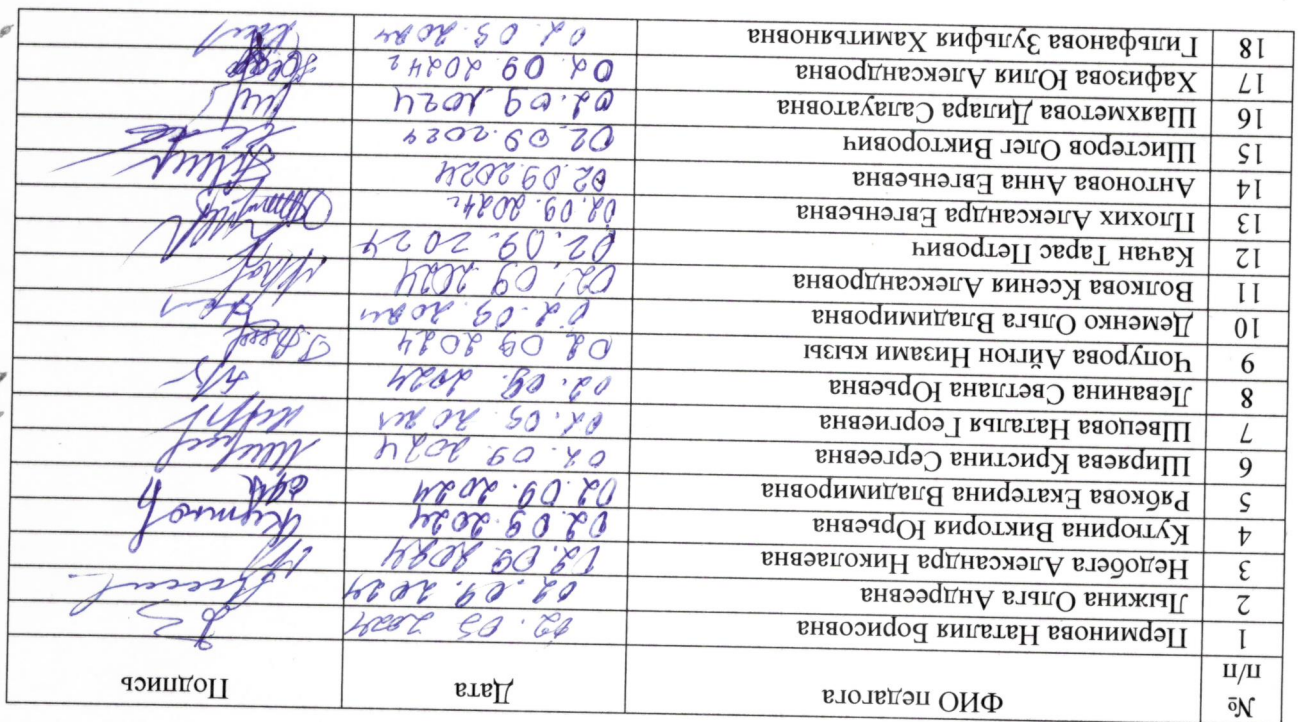 № п/п ФИО педагога Дата Подпись
1 Перминова Наталия Борисовна 02.09 2024
2 Лыжина Ольга Андреевна 02.09.2024
3 Недобега Александра Николаевна 02.09.2024
4 Кутюрина Виктория Юрьевна 02.09.2024
5 Рябкова Екатерина Владимировна 02.09.2024
6 Ширяева Кристина Сергеевна 02.09.2024
7 Швецова Наталья Георгиевна 02.09.2024
8 Леванина Светлана Юрьевна 02.09.2024
9 Чопурова Айгюн Низами кызы 02 09 2024
10 Деменко Ольга Владимировна 02.09.2024
11 Волкова Ксения Александровна 02.09 2024
12 Качан Тарас Петрович 02.09.2024
13 Плохих Александра Евгеньевна 02.09.2024г
14 Антонова Анна Евгеньевна 02.09.2024
15 Шистеров Олег Викторович 02.09.2024
16 Шаяхметова Дилара Салауатовна 02.09.2024
17 Хафизова Юлия Александровна 02.09 2024г
18 Гильфанова Зульфия Хамитьяновна 02.09.2024